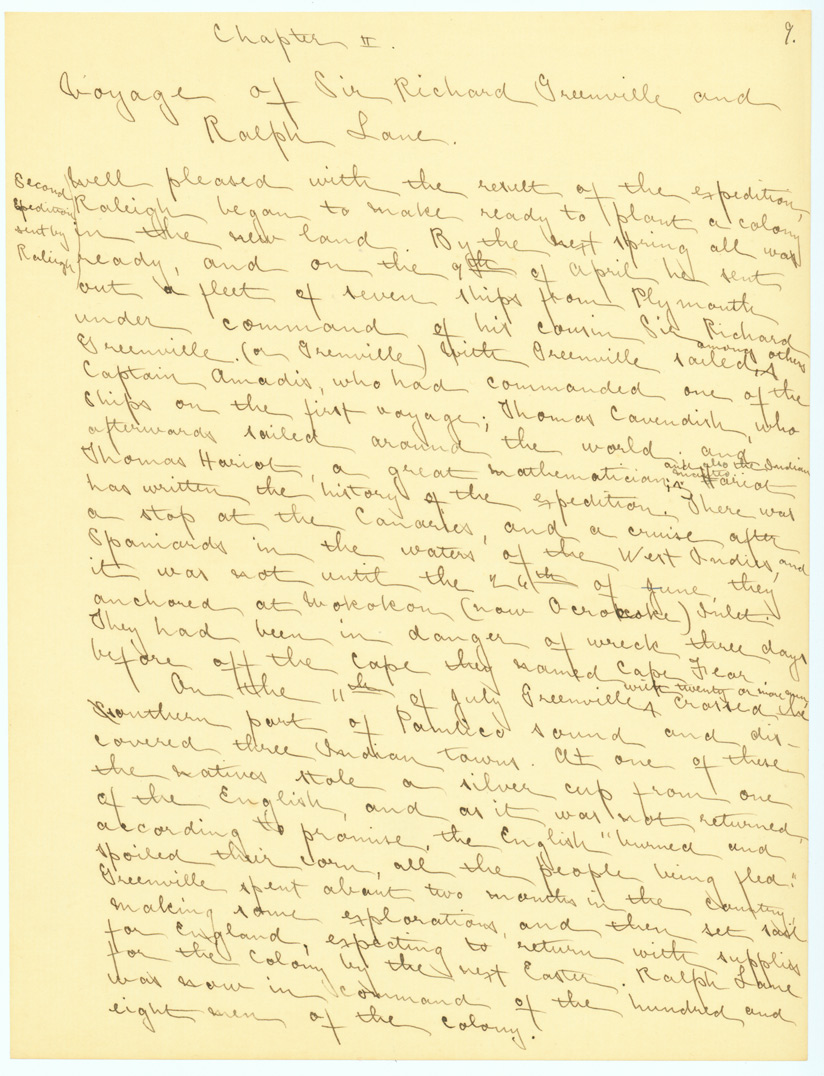 9.
Chapter II.
Voyage of Sir Richard Greenville and
Ralph Lane.
Second
Expedition
sent by
Raleigh
Well pleased with the result of the expedition,
Raleigh began to make ready to plant a colony
in the new land. By the next spring all was
ready, and on the 9th of April he sent
out a fleet of seven ships from Plymouth
under command of his cousin Sir Richard
Greenville (or Grenville) With Greenville sailed, among others
Captain Amadis, who had commanded one of the
ships on the first voyage; Thomas Cavendish, who
afterwards sailed around the world; and
Thomas Hariot, a great mathematician; and also the Indian
Hariot
has written the history of the expedition. There was
a stop at the Canaries, and a cruise after
Spaniards in the waters of the West Indies, and
it was not until the 26th of June, they
anchored at Wokokon (now Ocracoke) Inlet.
They had been in danger of wreck three days
before off the cape they named Cape Fear.
On the 11th of July Greenville, with twenty or more men, crossed the
Southern part of Pamlico sound and dis-
covered three Indian towns. At one of these
the natives stole a silver cup from one
of the English, and as it was not returned,
according to promise, the English "burned and
spoiled their corn, all the people being fled."
Greenville spent about two months in the country,
making some explorations, and then set sail
for England, expecting to return with supplies
for the colony by the next Easter. Ralph Lane
was now in command of the hundred and
eight men of the colony.